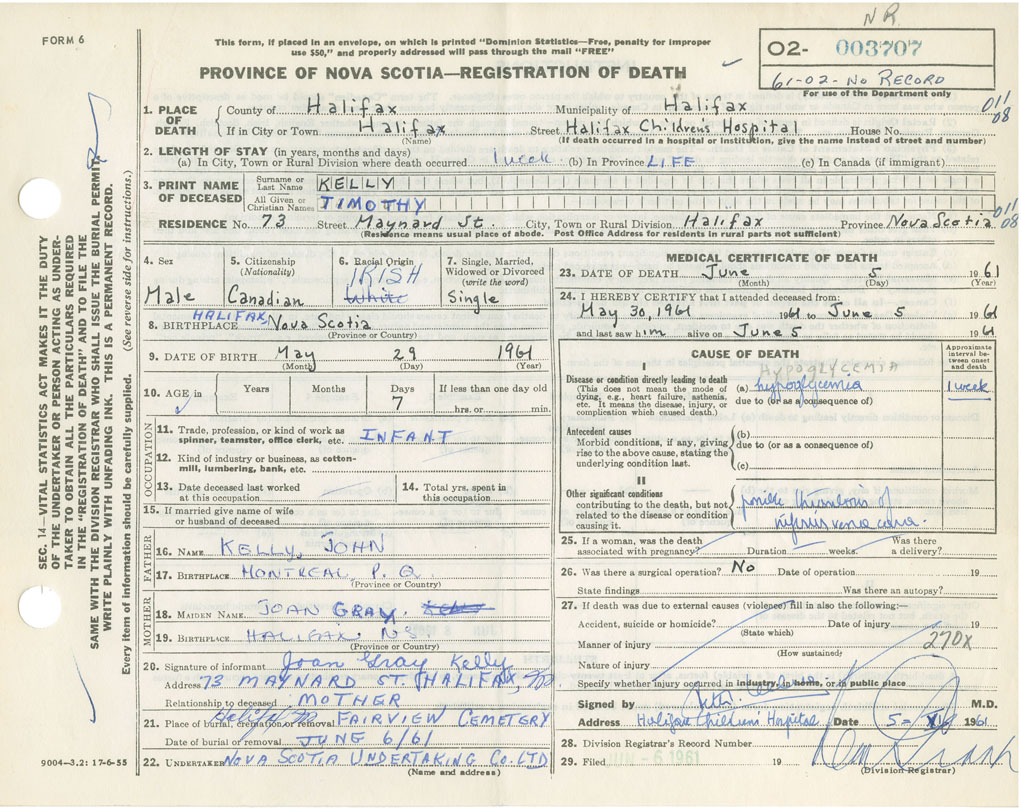 N R.
FORM 6
This form, if placed in an envelope, on which is printed "Dominion Statistics—Free, penalty for improper
use $50," and properly addressed will pass through the mail "FREE"
O2- 003707
61-02-No RECORD
For use of the Department only
PROVINCE OF NOVA SCOTIA—REGISTRATION OF DEATH
SEC. 14—VITAL STATISTICS ACT MAKES IT THE DUTY
OF THE UNDERTAKER OR PERSON ACTING AS UNDER-
TAKER TO OBTAIN ALL THE PARTICULARS REQUIRED
IN THE "REGISTRATION OF DEATH" AND TO FILE THE
SAME WITH THE DIVISION REGISTRAR WHO SHALL ISSUE THE BURIAL PERMIT.
WRITE PLAINLY WITH UNFADING INK. THIS IS A PERMANENT RECORD.
Every item of information should be carefully supplied. (See reverse side for instructions.)
1. PLACE OF DEATH County of Halifax Municipality of Halifax 011/08
If in City or Town Halifax Street Halifax Children's Hospital House No.
(Name) (If death occurred in a hospital or institution, give the name instead of street and number)
2. LENGTH OF STAY (in years, months and days)
(a) In City, Town or Rural Division where death occurred 1 week (b) In Province LIFE (c) In Canada (if immigrant)
3. PRINT NAME OF DECEASED Surname or Last Name KELLY
All Given or Christian Names TIMOTHY
RESIDENCE No. 73 Street Maynard St. City, Town or Rural Division Halifax Province Nova Scotia 011/08
(Residence means usual place of abode. Post Office Address for residents in rural parts not sufficient)
4. Sex Male
5. Citizenship (Nationality) Canadian
6. Racial Origin IRISH White
7. Single, Married, Widowed or Divorced (write the word) Single
8. BIRTHPLACE HALIFAX, Nova Scotia
(Province or Country)
9. DATE OF BIRTH May 29 1961
(Month) (Day) (Year)
10. AGE in Years Months Days 7 If less than one day old hrs. or min.
OCCUPATION
11. Trade, profession, or kind of work as spinner, teamster, office clerk, etc. INFANT
12. Kind of industry or business, as cotton-mill, lumbering, bank, etc.
13. Date deceased last worked at this occupation
14. Total yrs. spent in this occupation
15. If married give name of wife or husband of deceased
FATHER
16. NAME KELLY, JOHN
17. BIRTHPLACE MONTREAL, P. Q.
(Province or Country)
MOTHER
18. MAIDEN NAME JOAN GRAY.
19. BIRTHPLACE HALIFAX, N.S
(Province or Country)
20. Signature of informant Joan Gray Kelly
Address 73 MAYNARD ST. HALIFAX, NS
Relationship to deceased MOTHER
21. Place of burial, cremation or removal Halifax NS FAIRVIEW CEMETERY
Date of burial or removal JUNE 6/61
22. UNDERTAKER NOVA SCOTIA UNDERTAKING CO. LTD
(Name and address)
9004—3.2: 17-6-55
MEDICAL CERTIFICATE OF DEATH
23. DATE OF DEATH June 5 1961
(Month) (Day) (Year)
24. I HEREBY CERTIFY that I attended deceased from:
May 30, 1961 1961 to June 5 1961
and last saw him alive on June 5 1961
CAUSE OF DEATH
Approximate interval between onset and death
I
HYPOGLYCEMIA
Disease or condition directly leading to death (a) hypoglycemia 1 week
(This does not mean the mode of dying, e.g., heart failure, asthenia, etc. It means the disease, injury, or complication which caused death.) due to (or as a consequence of)
Antecedent causes (b)
Morbid conditions, if any, giving rise to the above cause, stating the underlying condition last. due to (or as a consequence of)
(c)
II
Other significant conditions contributing to the death, but not related to the disease or condition causing it. thrombosis of
vena cava.
25. If a woman, was the death associated with pregnancy? Duration weeks. Was there a delivery?
26. Was there a surgical operation? No Date of operation 19
State findings Was there an autopsy?
27. If death was due to external causes (violence) fill in also the following:—
Accident, suicide or homicide? Date of injury 19
(State which)
Manner of injury 270X
(How sustained)
Nature of injury
Specify whether injury occurred in industry, in home, or in public place
Signed by M.D.
Address Halifax Children's Hospital Date 5- 1961
28. Division Registrar's Record Number
29. Filed JUN -6 1961 19
(Division Registrar)